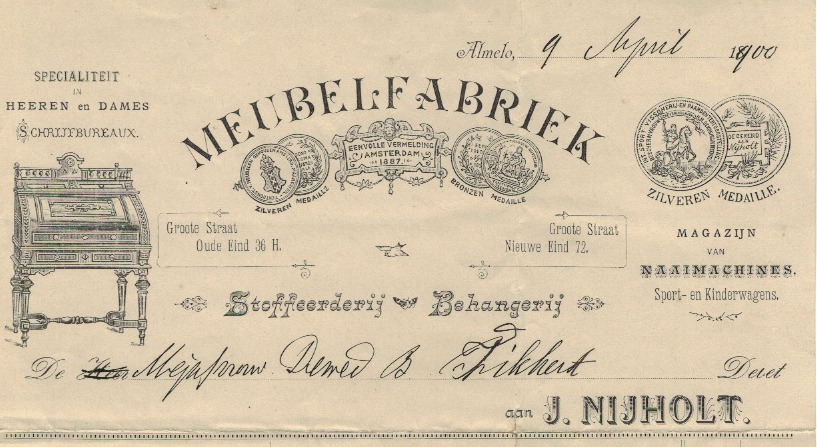 Almelo, 9 April 1900
SPECIALITEIT
IN
HEEREN en DAMES
SCHRIJFBUREAUX.
MEUBELFABRIEK
EERVOLLE VERMELDING
AMSTERDAM
1887.
ZILVEREN MEDAILLE
BRONZEN MEDAILLE
Nijholt
ZILVEREN MEDAILLE.
Groote Straat
Oude Eind 36 H.
Groote Straat
Nieuwe Eind 72.
MAGAZIJN
VAN
NAAIMACHINES,
Sport- en Kinderwagens.
Stoffeerderij Behangerij
De Heer Mejufvrouw Dewed B Debet
aan J. NIJHOLT.